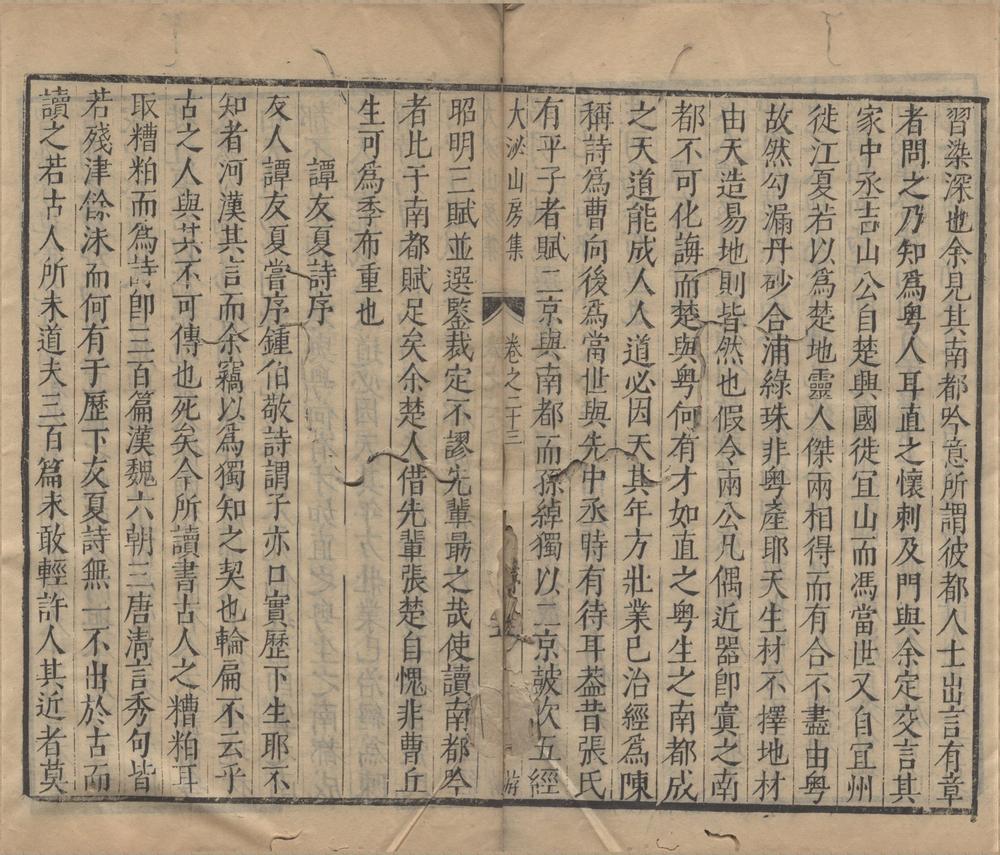 習染深也余見其南都吟意所謂彼都人士出言有章
者問之乃知爲粵人耳直之懷刺及門與余定交言其
家中丞吉山公自楚興國徙宜山而馮當世又自宜州
徙江夏若以爲楚地靈人傑兩相得而有合不盡由粵
故然勾漏丹砂合浦綠珠非粵產耶天生材不擇地材
由天造易地則皆然也假令兩公凡偶近器卽寘之南
都不可化誨而楚與粵何有才如直之粵生之南都成
之天道能成人人道必因天其年方壯業已治經爲陳
稱詩爲曹向後爲當世與先中丞時有待耳葢昔張氏
有平子者賦二京與南都而孫綽獨以二京皷吹五經
大泌山房集 卷之二十三
昭明三賦並選鑒裁定不謬先輩最之哉使讀南都吟
者比于南都賦足矣余楚人借先輩張楚自愧非曹丘
生可爲季布重也
譚友夏詩序
友人譚友夏嘗序鍾伯敬詩謂子亦口實歷下生耶不
知者河漢其言而余竊以爲獨知之契也輪扁不云乎
古之人與其不可傳也死矣今所讀書古人之糟粕耳
取糟粕而爲詩卽三百篇漢魏六朝三唐清言秀句皆
若殘津餘沫而何有于歷下友夏詩無一不出於古而
讀之若古人所未道夫三百篇未敢輕許人其近者莫